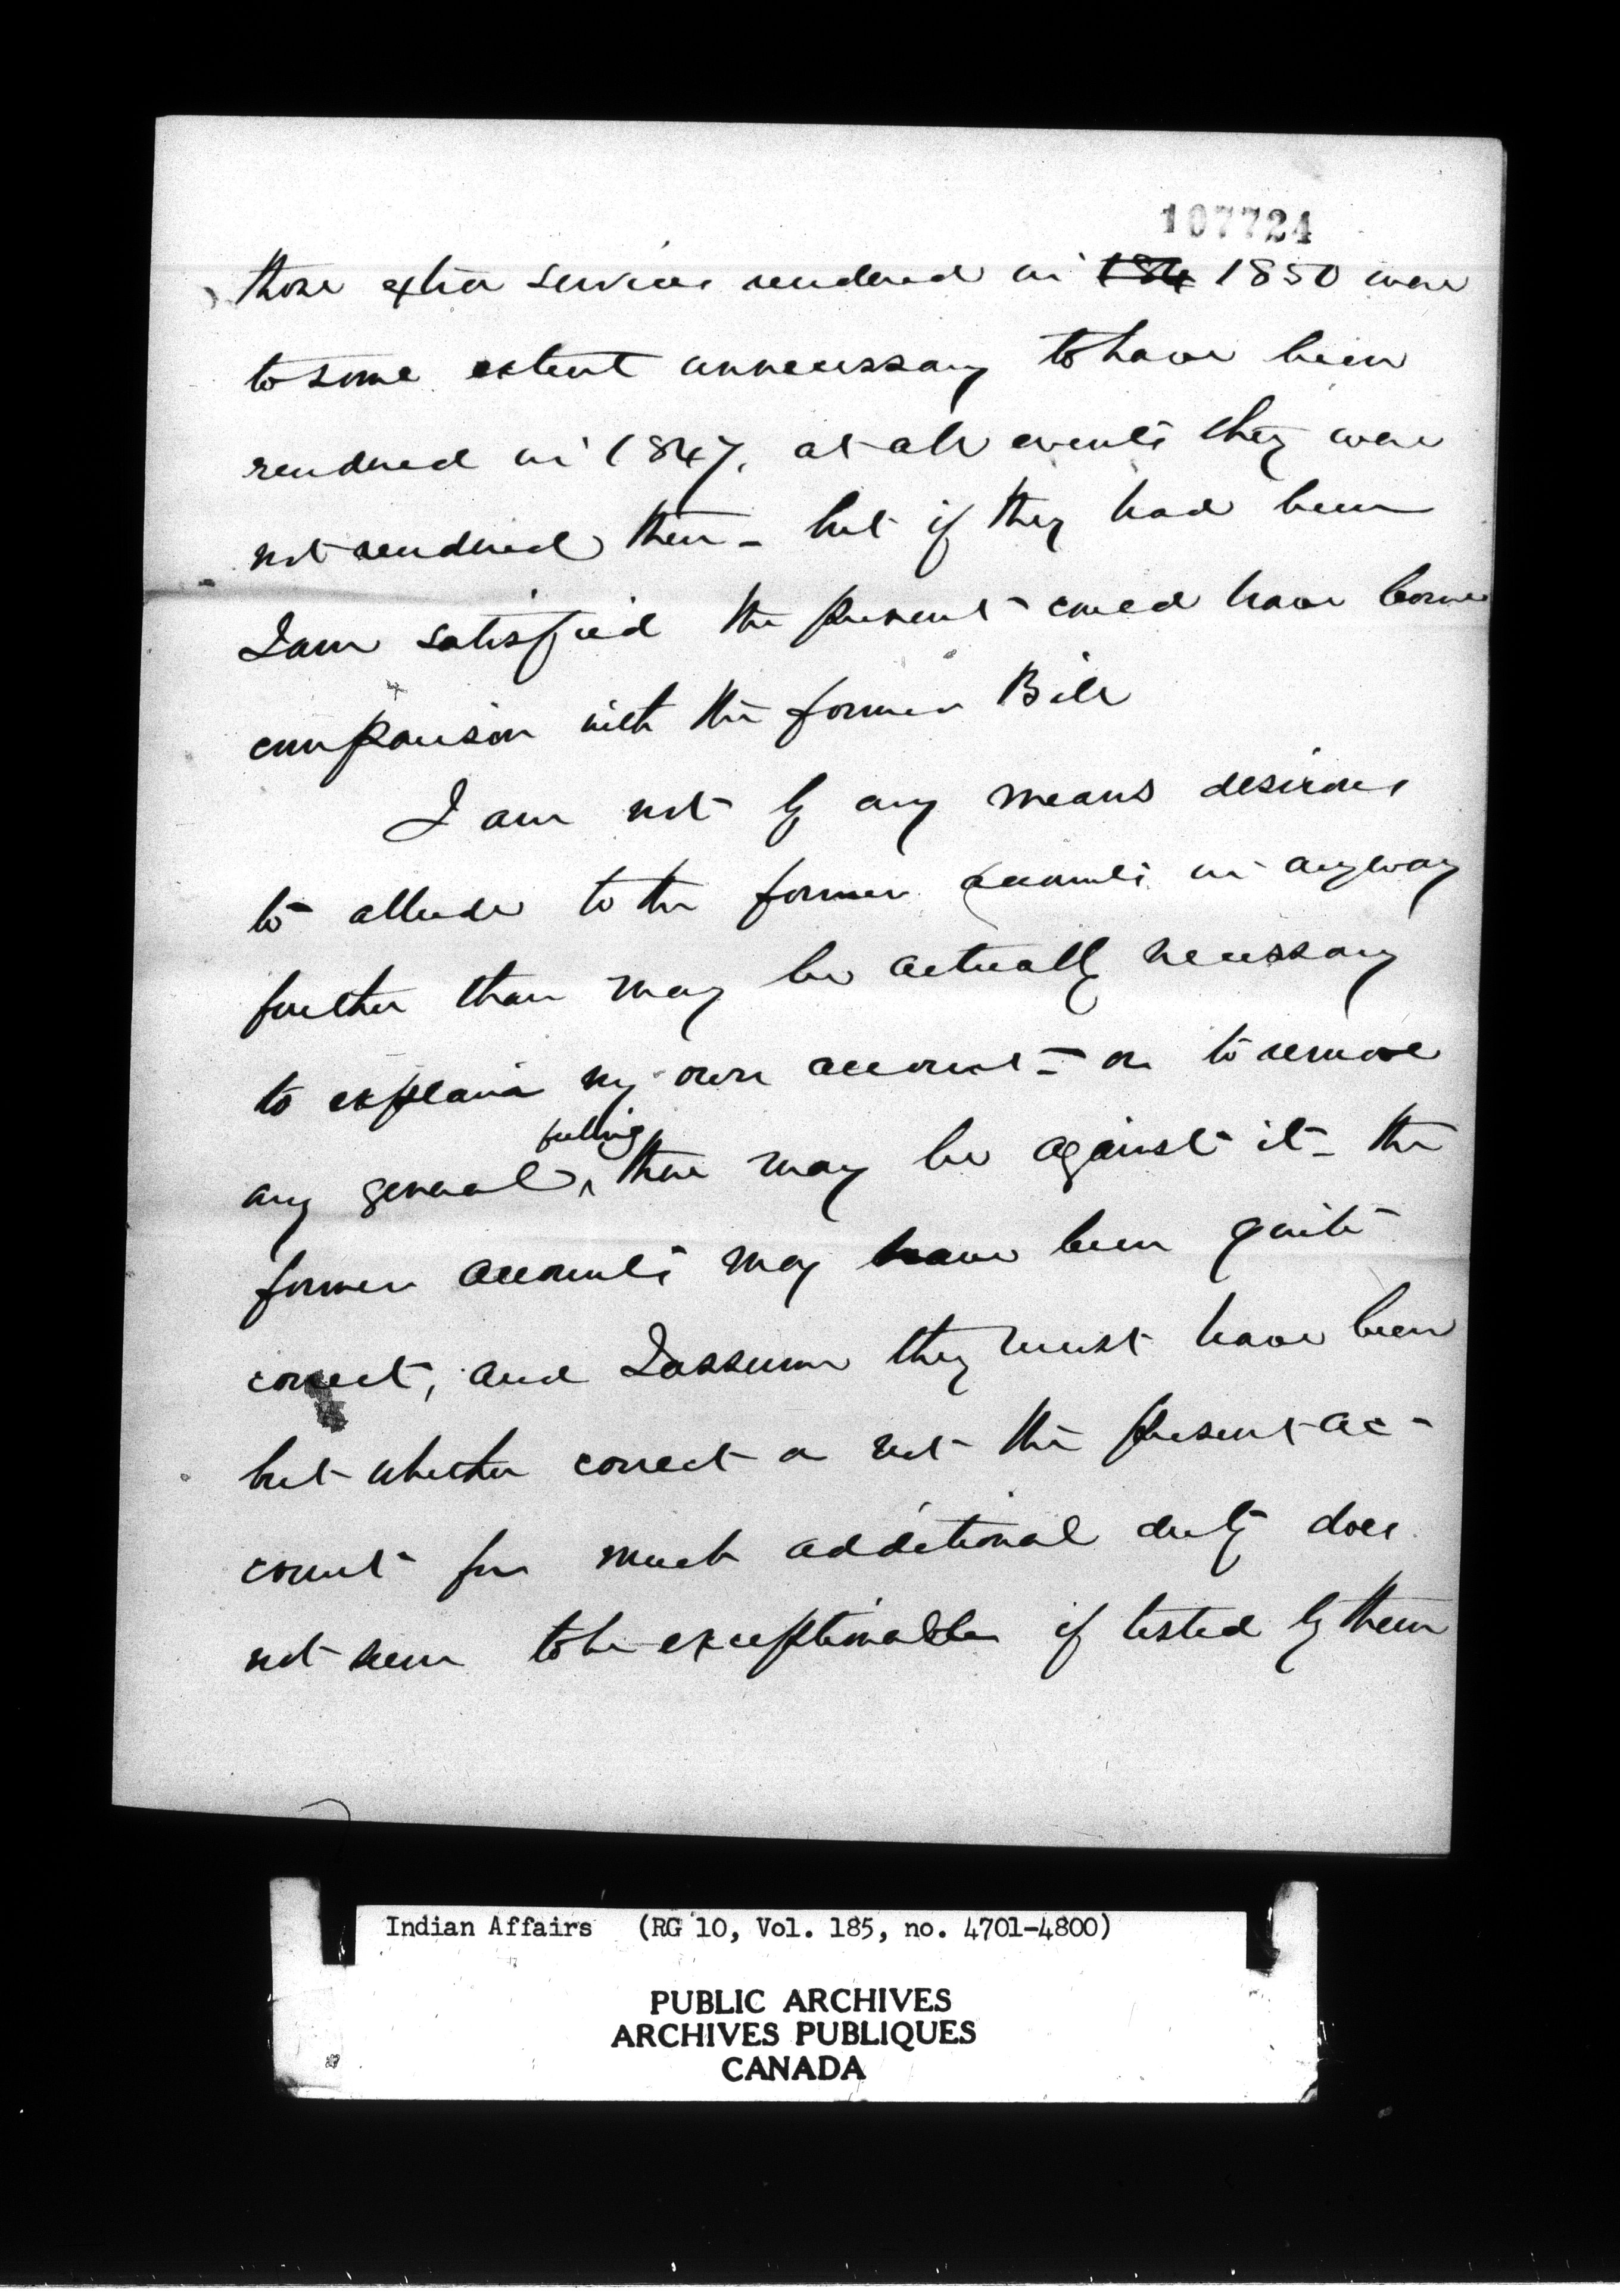 107724
those extra services rendered in 184 1850 were
to some extent unnecessary to have been
rendered in 1847, at all events they were
not rendered then - but if they had been
I am satisfied the present could have borne
comparison with the former Bill
I am not by any means desirous
to allude to the former accounts in anyway
further than may be actually necessary
to explain my own account - or to remove
feeling
any general ^ there may be against it - the
former accounts may have been quite
correct, and I assume they must have been
but whether correct or not the present ac-
count for much additional duty does
not seem to be exceptionable if tested by them
Indian Affairs (RG 10, Vol. 185, no. 4701-4800)
PUBLIC ARCHIVES
ARCHIVES PUBLIQUES
CANADA